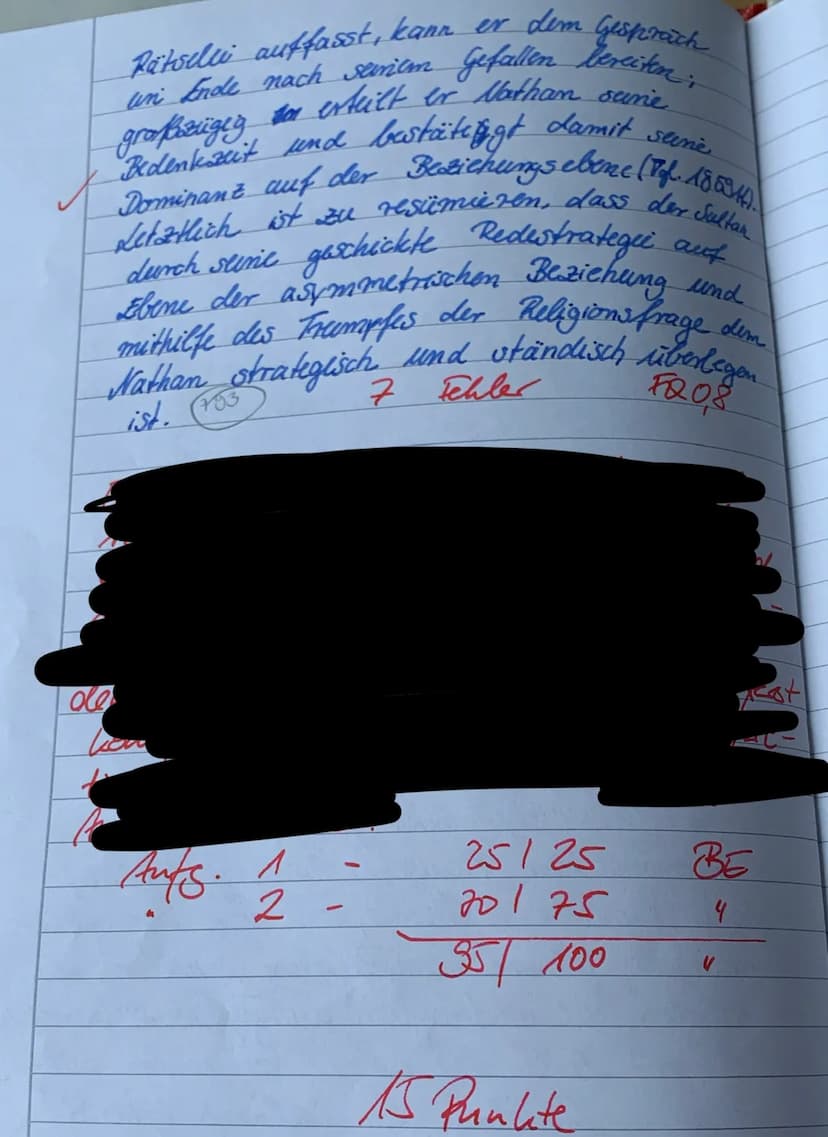 Rätselei auffasst, kann er dem Gespräch
ein Ende nach seinem Gefallen bereiten;
großzügig erteilt er Nathan seine
Bedenkzeit und bestätigt damit seine
Dominanz auf der Beziehungsebene (Vgl. 1869ff.).
Letztlich ist zu resümieren, dass der Sultan
durch seine geschickte Redestrategei auf
Ebene der asymmetrischen Beziehung und
mithilfe des Trumpfes der Religionsfrage dem
Nathan strategisch und ständisch überlegen
ist. 793
7 Fehler FQ 0,8
Aufg. 1 - 25 / 25 BE
" 2 - 70 / 75 "
95 / 100 "
15 Punkte